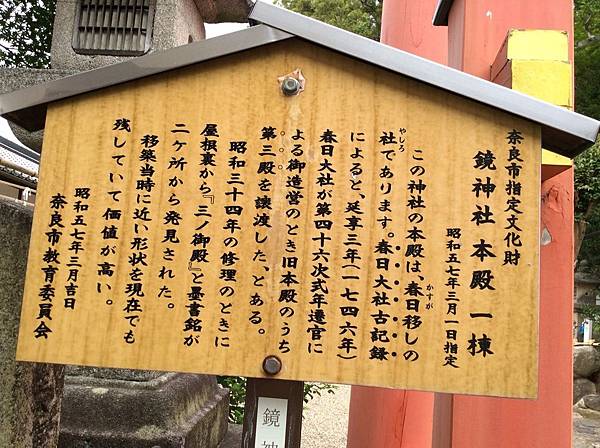 奈良市指定文化財
鏡神社本殿一棟
昭和五七年三月一日指定
この神社の本殿は、春日移しの
かすが
社であります。春日大社古記録
やしろ
によると、延享三年（一七四六年）
春日大社が第四十六次式年遷宮に
よる御造営のとき旧本殿のうち
第三殿を譲渡した、とある。
昭和三十四年の修理のときに
屋根裏から『三ノ御殿』と墨書銘が
二ヶ所から発見された。
移築当時に近い形状を現在でも
残していて価値が高い。
昭和五七年三月吉日
奈良市教育委員会
鏡神